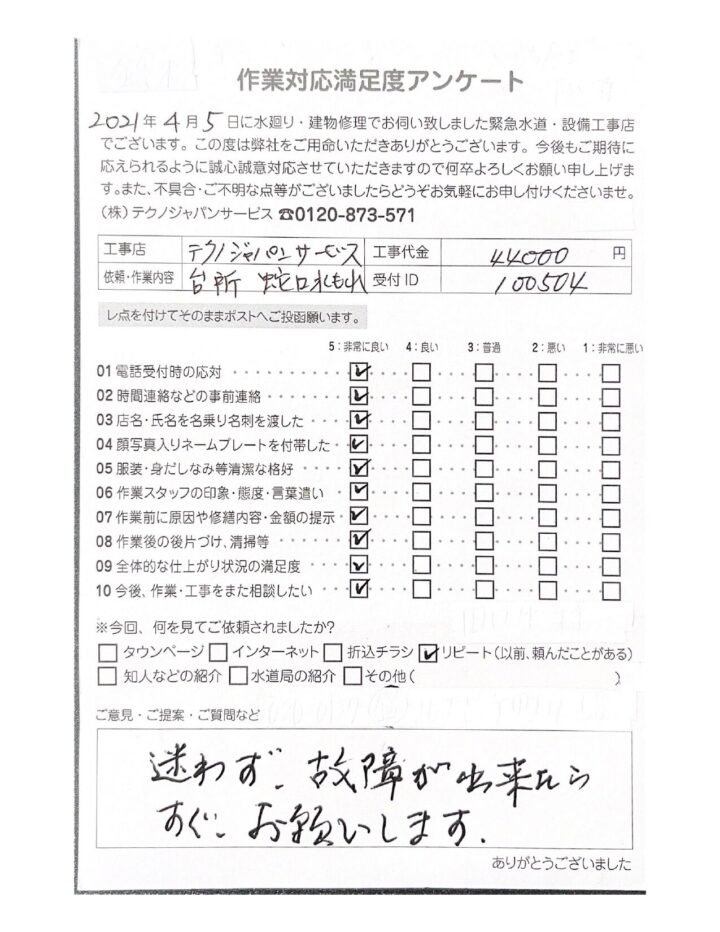 作業対応満足度アンケート
2021年 4月 5日に水廻り・建物修理でお伺い致しました緊急水道・設備工事店
でございます。この度は弊社をご用命いただきありがとうございます。今後もご期待に
応えられるように誠心誠意対応させていただきますので何卒よろしくお願い申し上げま
す。また、不具合・ご不明な点等がございましたらどうぞお気軽にお申し付けくださいませ。
(株)テクノジャパンサービス ☎0120-873-571
工事店 テクノジャパンサービス 工事代金 44000 円
依頼・作業内容 台所 蛇口水もれ 受付ID 100504
レ点を付けてそのままポストへご投函願います。
5:非常に良い 4:良い 3:普通 2:悪い 1:非常に悪い
01 電話受付時の応対
02 時間連絡などの事前連絡
03 店名・氏名を名乗り名刺を渡した
04 顔写真入りネームプレートを付帯した
05 服装・身だしなみ等清潔な格好
06 作業スタッフの印象・態度・言葉遣い
07 作業前に原因や修繕内容・金額の提示
08 作業後の後片づけ、清掃等
09 全体的な仕上がり状況の満足度
10 今後、作業・工事をまた相談したい
※今回、何を見てご依頼されましたか?
タウンページ インターネット 折込チラシ リピート(以前、頼んだことがある)
知人などの紹介 水道局の紹介 その他( )
ご意見・ご提案・ご質問など
迷わず、故障が出来たら
すぐ、お願いします.
ありがとうございました